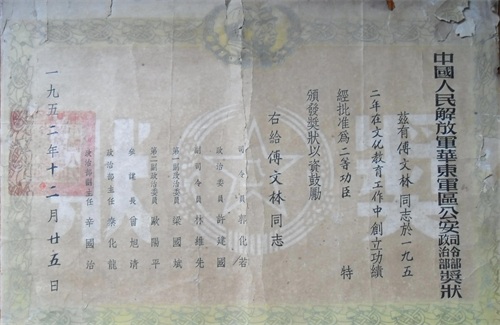 中國人民解放軍華東軍區公安司令部政治部獎狀
茲有傅文林同志於一九五
二年在文化教育工作中創立功績
經批准為二等功臣 特
頒發獎狀以資鼓勵
右給傅文林同志
司令員 郭化若
政治委員 許建國
副司令員 林維先
第一副政治委員 梁國斌
第二副政治委員 歐陽平
參謀長 曾旭清
政治部主任 李化龍
政治部副主任 辛國治
一九五二年十二月廿五日